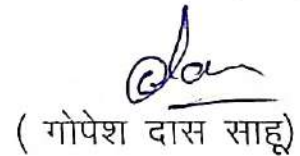 ( गोपेश दास साहू)